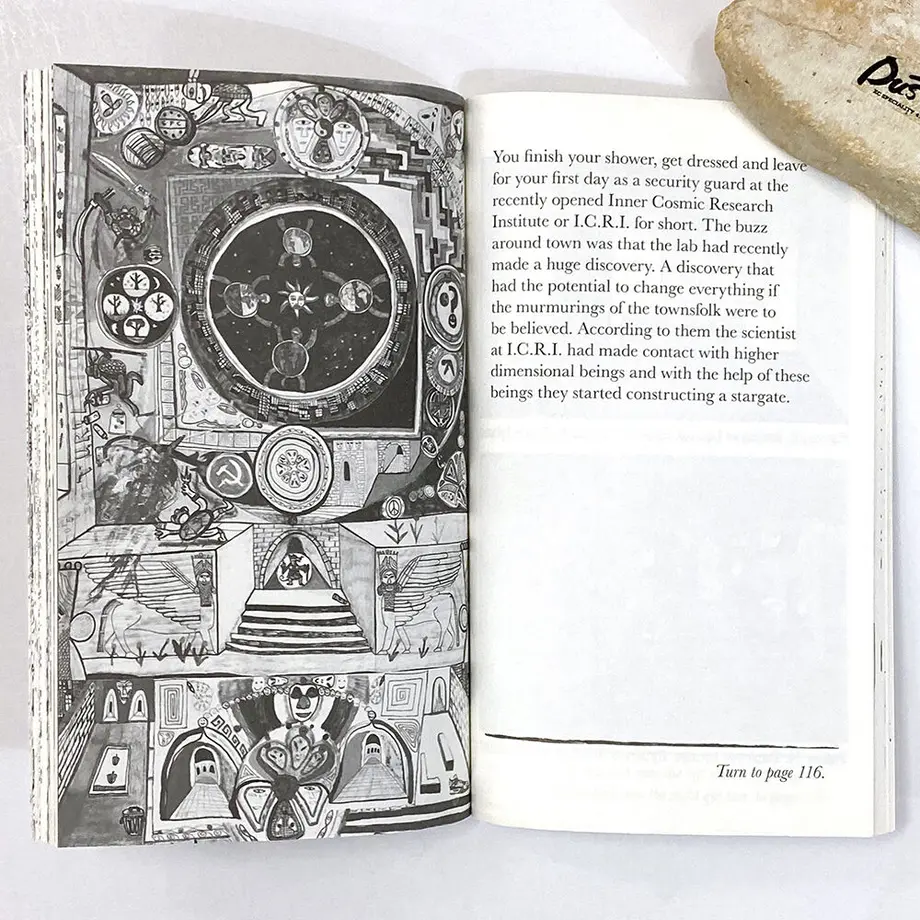 You finish your shower, get dressed and leave
for your first day as a security guard at the
recently opened Inner Cosmic Research
Institute or I.C.R.I. for short. The buzz
around town was that the lab had recently
made a huge discovery. A discovery that
had the potential to change everything if
the murmurings of the townsfolk were to
be believed. According to them the scientist
at I.C.R.I. had made contact with higher
dimensional beings and with the help of these
beings they started constructing a stargate.
Turn to page 116.